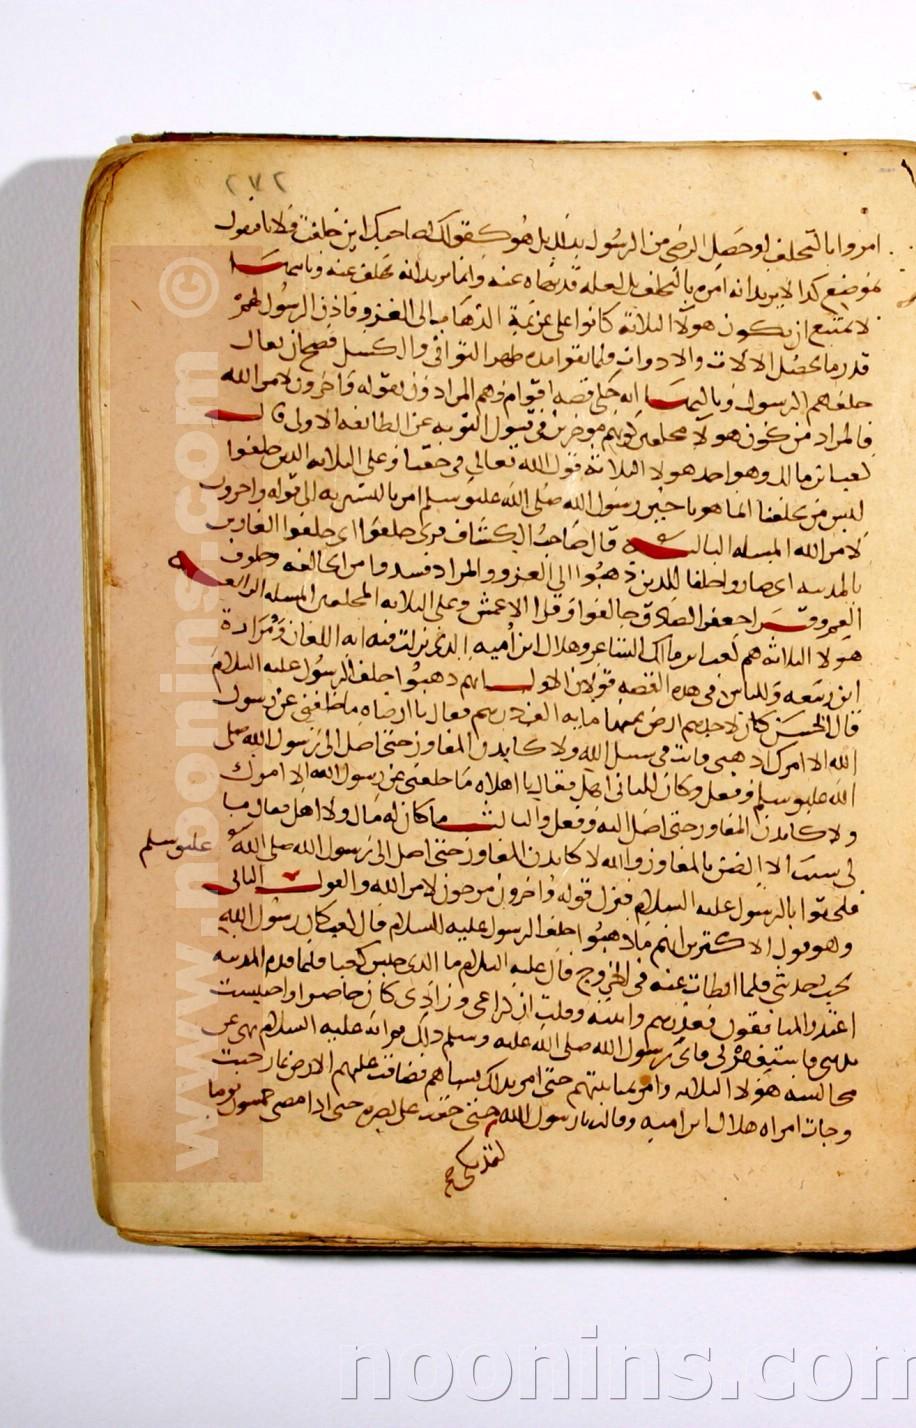 ٢٧٢
امروا بالتخلف او حصل الرضى من الرسول بذلك بل هو كقولك لصاحبك اين خلفت فلانا فيقول
بموضع كذا لا يريد انه امره بالتخلف بل لعله قد نهاه عنه وانما يريد انه تخلف عنه وثانيها
لا يمتنع ان يكون هولاء الثلاثة كانوا على عزيمة الذهاب الى الغزو فاذن الرسول لهم
قدر ما يحصل الالات والادوات فلما بقوا مدة ظهر التواني والكسل فصح ان يقال
خلفهم الرسول وثالثها انه حكى قصة اقوام وهم المرادون بقوله واخرون لامر الله
فالمراد من كون هولاء مخلفين كونهم موخرين في قبول التوبة عن الطائفة الاولى قال
كعب بن مالك وهو احد هولاء الثلاثة قول الله تعالى في حقنا وعلى الثلاثة الذين خلفوا
ليس من تخلفنا انما هو تاخير رسول الله صلى الله عليه وسلم امرنا يشير به الى قوله واخرون
لامر الله المسلة الثالثة قال صاحب الكشاف قرى خلفوا اى خلفوا الغازين
بالمدينة اى صاروا خلفا للذين ذهبوا الى الغزو والمراد فسدوا من الخالفة وخلوف
الفم وقرا جعفر الصادق خالفوا وقرا الاعمش وعلى الثلاثة المخلفين المسلة الرابعة
هولا الثلاثة هم كعب بن مالك الشاعر وهلال ابن امية الذى نزلت فيه اية اللعان ومرارة
ابن ربيعة وللناس في هذه القصة قولان الاول انهم ذهبوا خلف الرسول عليه السلام
قال الحسن كان لاحدهم ارض ثمنها ماية الف درهم فقال يا ارضاه ما خلفني عن رسول
الله الا امرك اذهبى فانت في سبيل الله ولاكابدن المفاوز حتى اصل الى رسول الله صلى
الله عليه وسلم وفعل وكان للثانى اهل فقال يا اهلاه ما خلفنى عن رسول الله الا امرك
ولاكابدن المفاوز حتى اصل اليه وفعل والثالث ما كان له مال ولا اهل فقال ما
لى سبب الا الضن بالمفاوز والله لاكابدن المفاوز حتى اصل الى رسول الله صلى الله عليه وسلم
فلحقوا بالرسول عليه السلام فنزل قوله واخرون مرجون لامر الله والقول الثانى
وهو قول الاكثرين انهم ما ذهبوا خلف الرسول عليه السلام قال كعب كان رسول الله
يحب حديثى فلما ابطات عنه في الخروج قال عليه السلام ما الذى حبس كعبا فلما قدم المدينة
اعتذر المنافقون فعذرهم واتيته وقلت ان كراعى وزادى كان حاضرا واحتبست
بذنبى فاستغفر لى فابى رسول الله صلى الله عليه وسلم ذلك ثم انه عليه السلام نهى عن
مجالسة هولا الثلاثة وامر بمباينتهم حتى امر بذلك نساهم فضاقت عليهم الارض بما رحبت
وجات امراة هلال ابن امية وقالت يا رسول الله حتى خفت على بصره حتى اذا مضى خمسون يوما
www.noonins.com ©
noonins.com